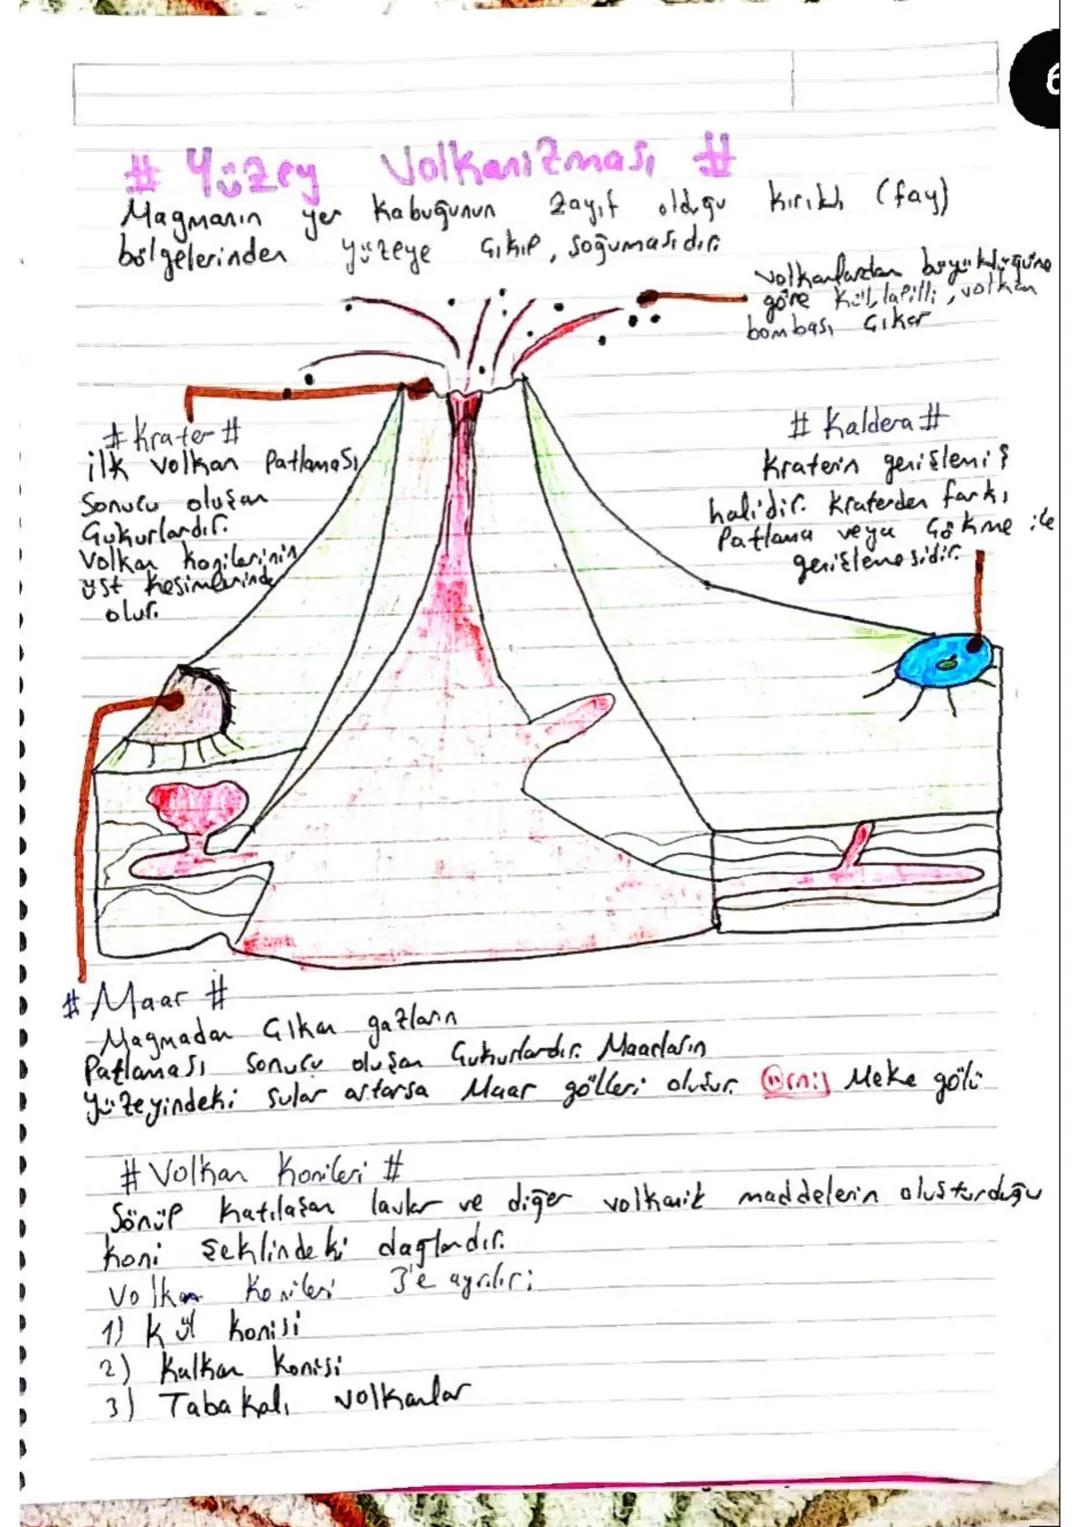 # Yüzey Volkanizması #
Magmanın yer kabuğunun zayıf olduğu kırıklı (fay)
bölgelerinden yüzeye çıkıp, soğumasıdır.
Volkanlardan büyüklüğüne
göre kül, lapilli, volkan
bombası çıkar
# Krater #
ilk volkan patlaması
Sonucu oluşan
Çukurlardır.
Volkan konilerinin
üst kesimlerinde
olur.
# Kaldera #
Kraterin genişlemiş
halidir. Kraterden farkı
Patlama veya Çökme ile
genişlemesidir.
# Maar #
Magmadan Çıkan gazların
Patlaması sonucu oluşan Çukurlardır. Maarların
yüzeyindeki sular artarsa Maar gölleri oluşur. Örn: Meke gölü
# Volkan Konileri #
Sönüp katılaşan lavlar ve diğer volkanik maddelerin oluşturduğu
koni şeklindeki dağlardır.
Volkan Konileri 3'e ayrılır;
1) Kül konisi
2) Kalkan Konisi
3) Tabakalı volkanlar
6